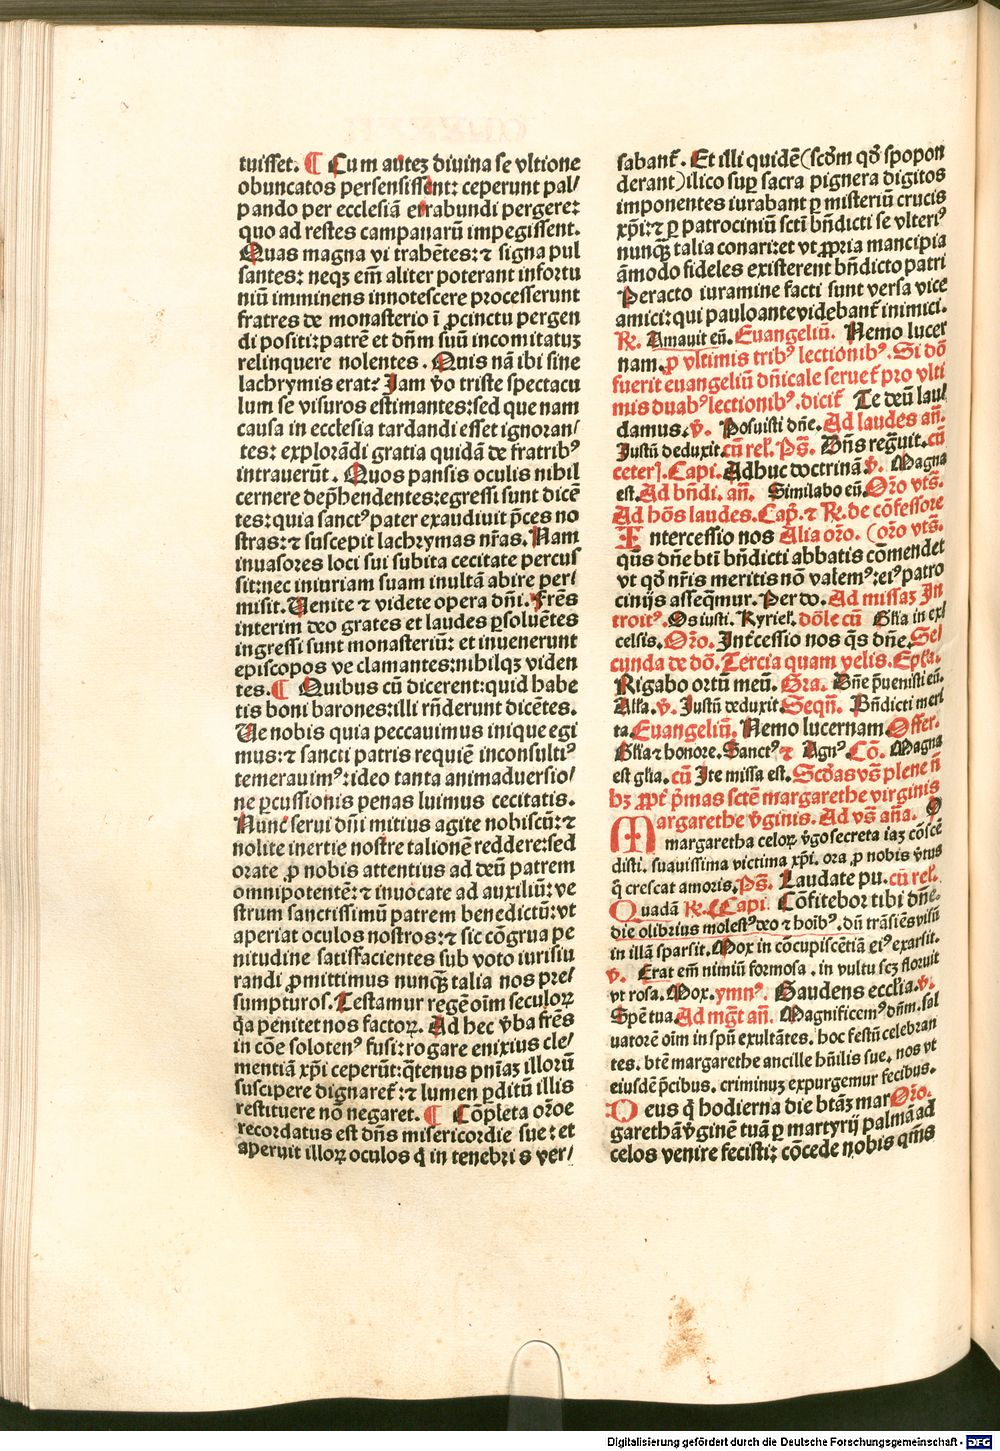 tuisset. ¶ Cum autez divina se vltione
obuncatos persensissent: ceperunt pal/
pando per ecclesiā errabundi pergere:
quo ad restes campanarū impegissent.
Quas magna vi trabētes: ⁊ signa pul
santes: neqz em̄ aliter poterant infortu
niū imminens innotescere processerunt
fratres de monasterio ī ꝓcinctu pergen
di positi: patrē et dn̄m suū incomitatuꝫ
relinquere nolentes . Quis nā ibi sine
lachrymis erat? Jam v̄o triste spectacu
lum se visuros estimantes: sed que nam
causa in ecclesia tardandi esset ignoran/
tes: explorādi gratia quidā de fratribꝰ
intrauerūt . Quos pansis oculis nihil
cernere dep̄hendentes: egressi sunt dicē
tes: quia sanctꝰ pater exaudiuit p̄ces no
stras: ⁊ suscepit lachrymas nr̄as. Nam
inuasores loci sui subita cecitate percus
sit: nec iniuriam suam inultā abire per/
misit. Uenite ⁊ videte opera dn̄i. Frēs
interim deo grates et laudes ꝑsoluētes
ingressi sunt monasteriū: et inuenerunt
episcopos ve clamantes: nibilqꝫ viden
tes. ¶ Quibus cū dicerent: quid habe
tis boni barones: illi rn̄derunt dicētes.
Ue nobis quia peccauimus inique egi
mus: ⁊ sancti patris requiē inconsultiꝰ
temerauimꝰ: ideo tanta animaduersio/
ne ꝑcussionis penas luimus cecitatis.
Nunc serui dn̄i mitius agite nobiscū: ⁊
nolite inertie nostre talionē reddere: sed
orate ꝓ nobis attentius ad deū patrem
omnipotentē: ⁊ inuocate ad auxiliū: ve
strum sanctissimū patrem benedictū: vt
aperiat oculos nostros: ⁊ sic cōgrua pe
nitudine satisfacientes sub voto iurisiu
randi ꝓmittimus nunqꝫ̄ talia nos pre/
sumpturos. Testamur regē oīm seculoꝝ
q̄a penitet nos factoꝝ. Ad hec v̄ba frēs
in cōe solotenꝰ fusi: rogare enixius cle/
mentiā xp̄i ceperūt: q̄tenus pn̄iaꝫ illorū
suscipere dignaret̄: ⁊ lumen ꝑditū illis
restituere nō negaret. ¶ Cōpleta orōe
recordatus est dn̄s misericordie sue: et
aperuit illoꝝ oculos q̄ in tenebris ver/
sabant̄. Et illi quidē (scd̄m qd̄ spopon
derant) ilico suꝑ sacra pignera digitos
imponentes iurabant ꝑ misteriū crucis
xp̄i: ⁊ ꝑ patrociniū scti bn̄dicti se vlteriꝰ
nunqꝫ̄ talia conari: et vt ꝓpria mancipia
āmodo fideles existerent bn̄dicto patri
Peracto iuramine facti sunt versa vice
amici: qui pauloante videbant̄ inimici.
℟. Amauit eū. Euangeliū. Nemo lucer
nam. ꝓ vltimis tribꝰ lectionibꝰ. Si dō
fuerit euangeliū dn̄icale seruet̄ pro vlti
mis duabꝰ lectionibꝰ. dicit̄ Te deū lau/
damus. ℣. Posuisti dn̄e. Ad laudes an̄.
Justū deduxit. cū rel̄. Ps̄. Dn̄s regnuit. cū
ceter]. Capi. Adhuc doctrinā ℣. Magna
est. Ad bn̄di. an̄. Similabo eū. Orō vts̄.
Ad hōs laudes. Cap̄. ⁊ ℟. de cōfessore
Intercessio nos Alia orō. (orō vts̄.
qs̄ dn̄e btī bn̄dicti abbatis cōmendet
vt qd̄ nr̄is meritis nō valemꝰ: eiꝰ patro
cinijs asseq̄mur. Per dō. Ad missaꝫ In
troitꝰ. Os iusti. Kyriel̄. dōle cū Glīa in ex/
celsis. Orō. Int̄cessio nos qs̄ dn̄e. Se/
cunda de dō. Tercia quam velis. Epl̄a.
Rigabo ortū meū. Gra. Dn̄e p̄uenisti eū.
Alla. ℣. Justū deduxit. Seqn̄. Bn̄dicti meri
ta. Euangeliū. Nemo lucernam. Offer.
Glīa ⁊ honore. Sanctꝰ ⁊ Agnꝰ. Cō. Magna
est glīa. cū Ite missa est. Scd̄as vs̄ plene n̄
hꝫ ꝓpt̄ p̄mas sctē margarethe virginis
Margarethe v̄ginis. Ad vs̄ an̄a. O
margaretha celoꝝ v̄go secreta iaꝫ cōscē
disti. suauissima victima xp̄i. ora ꝓ nobis v̄tus
q̄ crescat amoris. Ps̄. Laudate pu. cū rel̄.
Quadā ℟. Capi. Cōfitebor tibi dn̄e.
die olibrius molestꝰ deo ⁊ hoībꝰ. dū trāsiēs visū
in illā sparsit. Mox in cōcupiscētiā eiꝰ exarsit.
℣. Erat em̄ nimiū formosa . in vultu scꝫ floruit
vt rosa. Mox. ymnꝰ. Gaudens eccl̄ia. ℣.
Spē tua. Ad mgt̄ an̄. Magnificemꝰ dn̄m. sal
uatorē oīm in spū exultātes. hoc festū celebran
tes. btē margarethe ancille hn̄ilis sue. nos vt
eiusdē p̄cibus. criminuꝫ expurgemur fecibus.
Deus q̄ hodierna die btāꝫ mar Orō.
garethā v̄ginē tuā ꝑ martyrij palmā ad
celos venire fecisti: cōcede nobis qm̄s
Digitalisierung gefördert durch die Deutsche Forschungsgemeinschaft - DFG